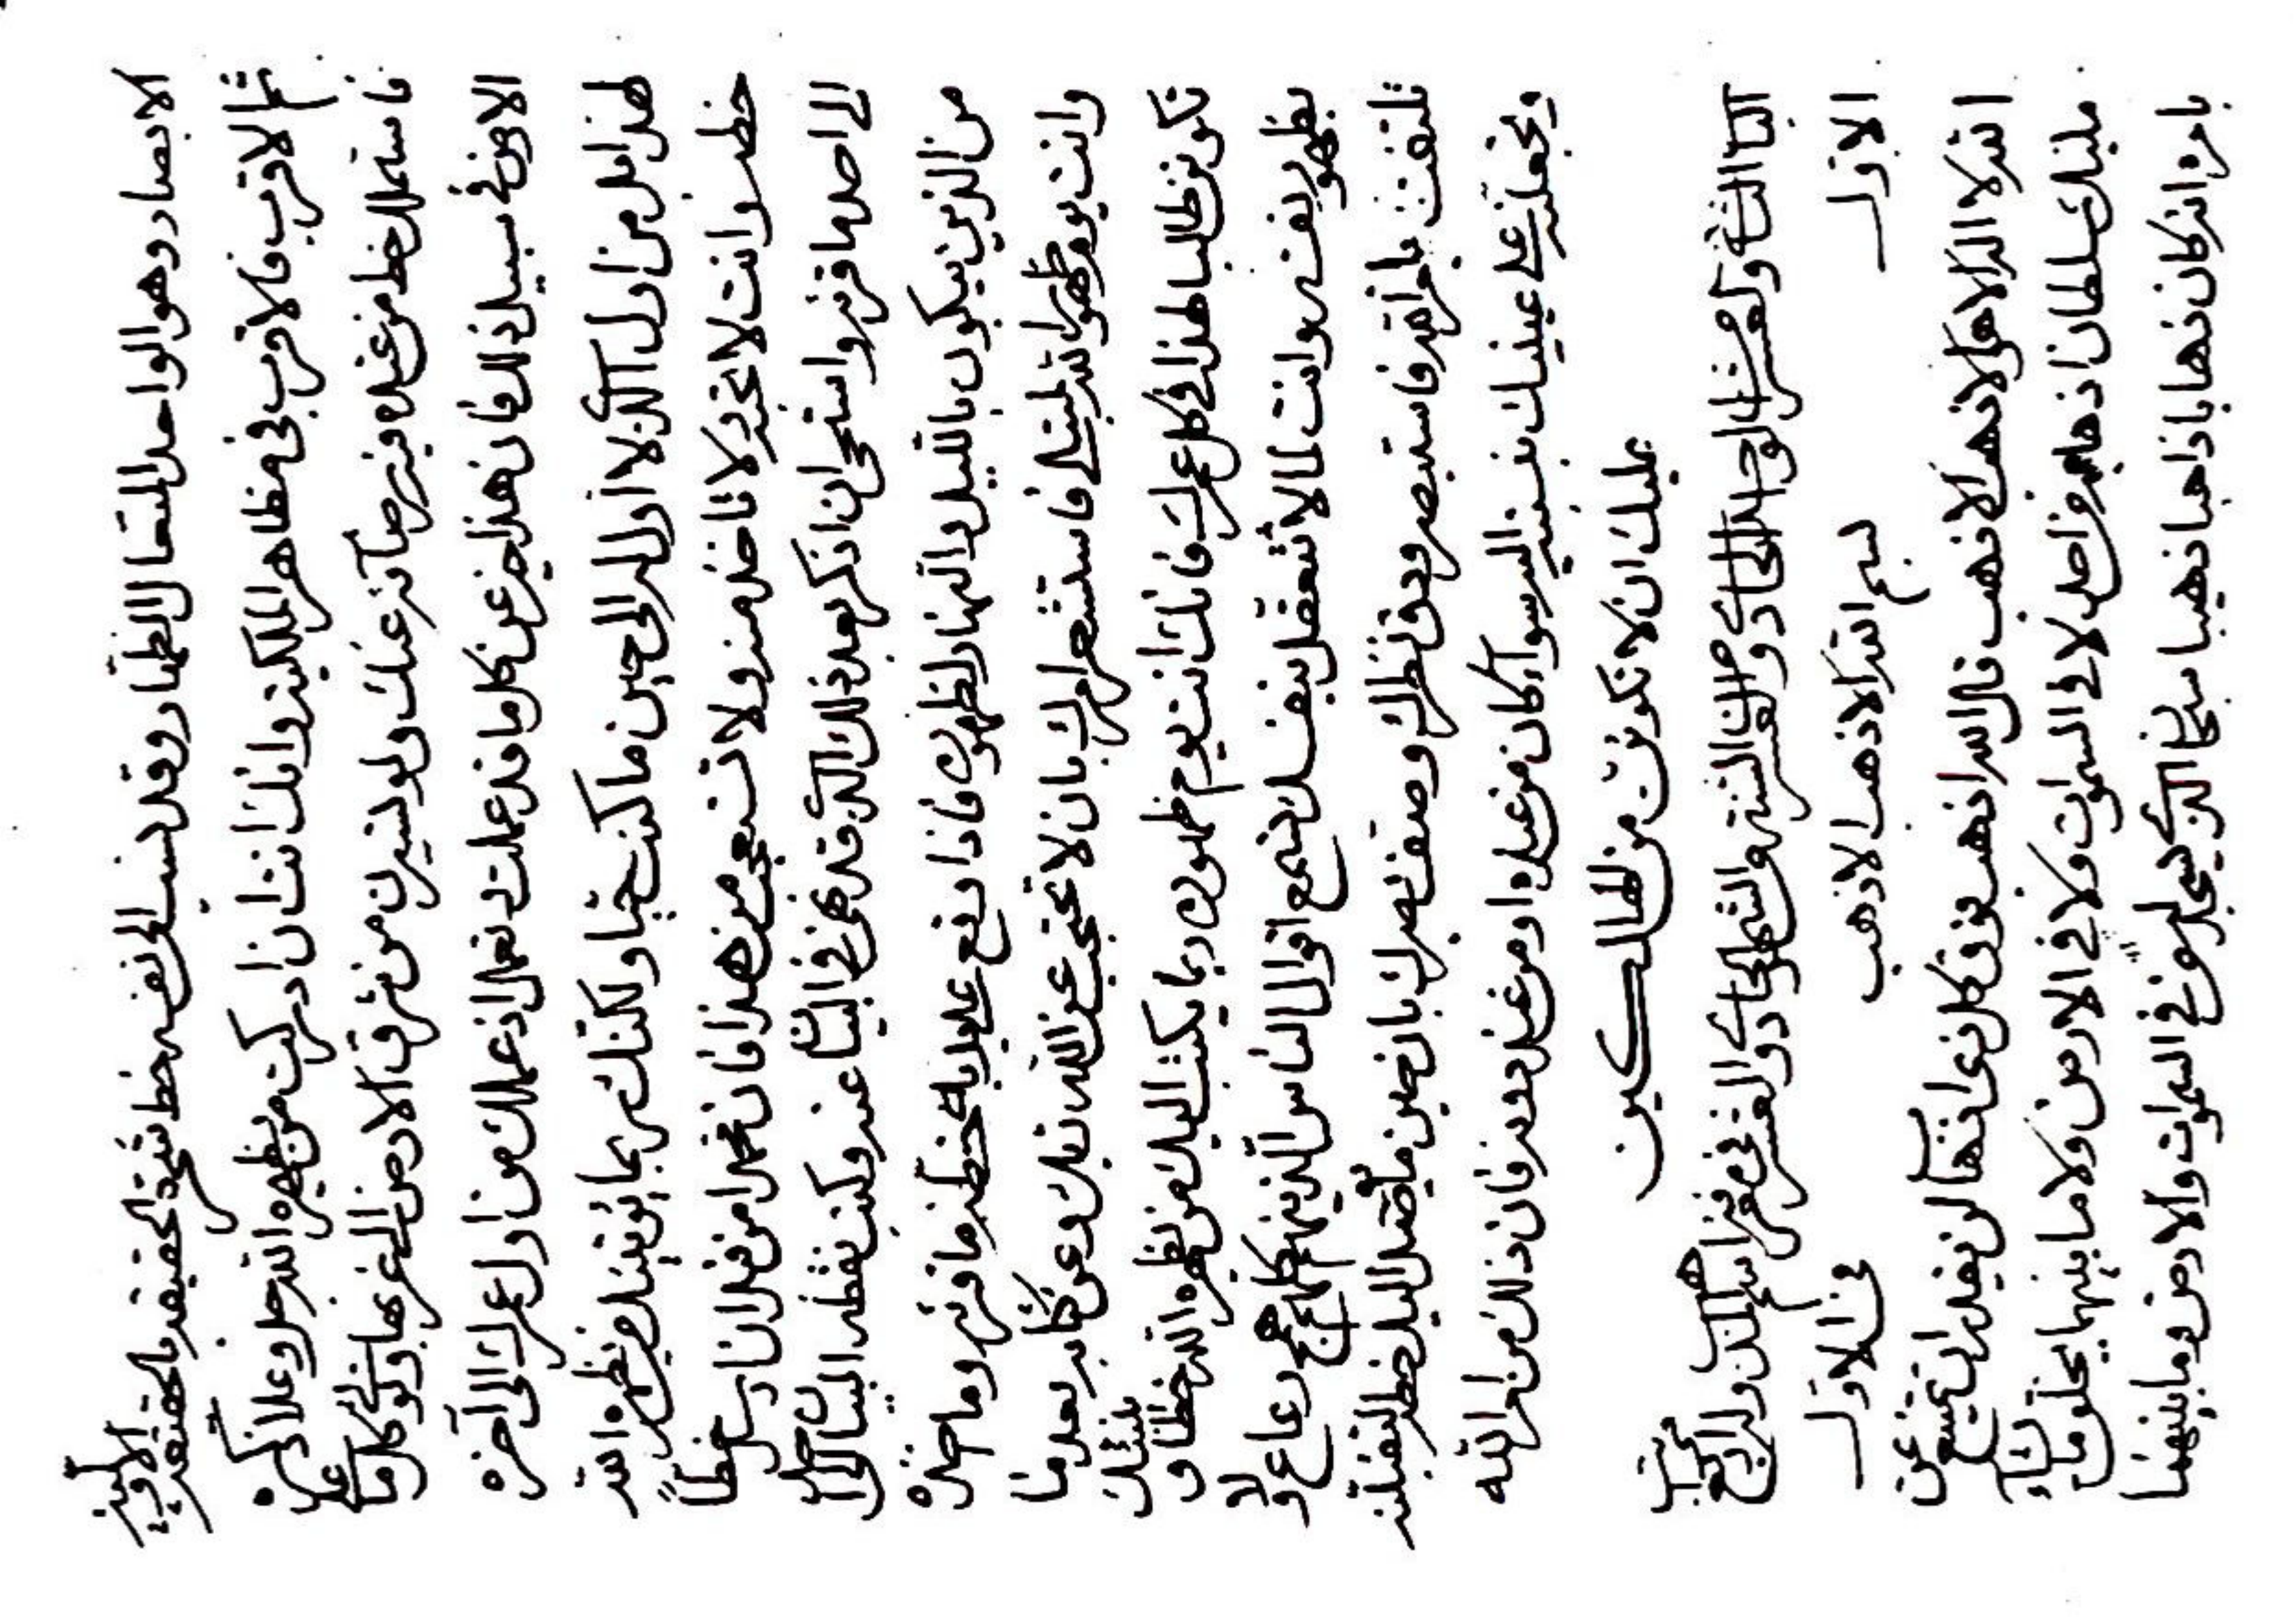 الابصار وهو الواحد المتعال الظهار وقد نسب الى نفسه خط شجرة الحقيقة بالحقيقة الاولية
ثم الاقرب فالاقرب فى مظاهر الملكية وانك انت ان ادركت من يظهره الله جل وعلا ذكره
فاستملك خط من عنده فيه رضائه عنك ولو تسيرن من شرق الارض الى غربها وتؤتى كل ما على
الارض فى سبيل ذلك فان هذا خير عن كل ما قد عملت وتعمل اذ عملك من اول عمرك الى آخره
لهذا بل من اول الذى لا اول له الى حين ما كنت حيا ولكنك بما يؤتينك من يظهره الله
خط وانت لا تحزن لا تاخذ منه ولا تستعجب من هذا فان محمدا من قبل ان ارسل خطاً
الى احد ما قرئه واستحى ان اذكر بعد ذلك الذى قد قضى فى البيان عنه وكتب نقطة البيان الى
من الذين يبكون بالليل والنهار لظهوره فاذا رفع عليه خطه ما قرئه وما اخذه
وانت يوم ظهور الله لتبتلى فاستشعر امرك بان لا تحتجب عن الله ربك وعن كتابه بعد ما
تكونن طالبا لهذا فى كل عمرك فانك انت يوم ظهوره ربما يكتب اليك من يظهره الله خطا و
يظهر نفسه وانت لما لا تتعقل بنفسك تتبع اقوال الناس الذينهم كلهم همج رعاع ولا
تلتفت بامر الله فاستبصر ودق نظرك وصف بصرك بان حين ما يصل اليك خط لتقبلنه
وتجعلنه على عينيك بنفسه سواء كان من عنده او من عند دونه فان ذلك من امر الله
عليك ان لا تكونن من الهالكين
الباب الثانى والعشر الواحد الحادى والعشر السنة والشهر الحادى والعشر فى معرفة اسم المذهب وله اربع مراتب
الاول فى الاول
بسم الله الاذهب الاذهب
الله لا اله الا هو الاذهب الاذهب قل الله اذهب فوق كل ذى اذهاب لن يقدر ان يمتنع عن
مليك سلطان اذهابه من احد لا فى السموات ولا فى الارض ولا ما بينهما يخلق ما يشاء
بامره انه كان ذهابا ذاهبا ذهيبا سبحان الذى يسجد له من فى السموات والارض وما بينهما